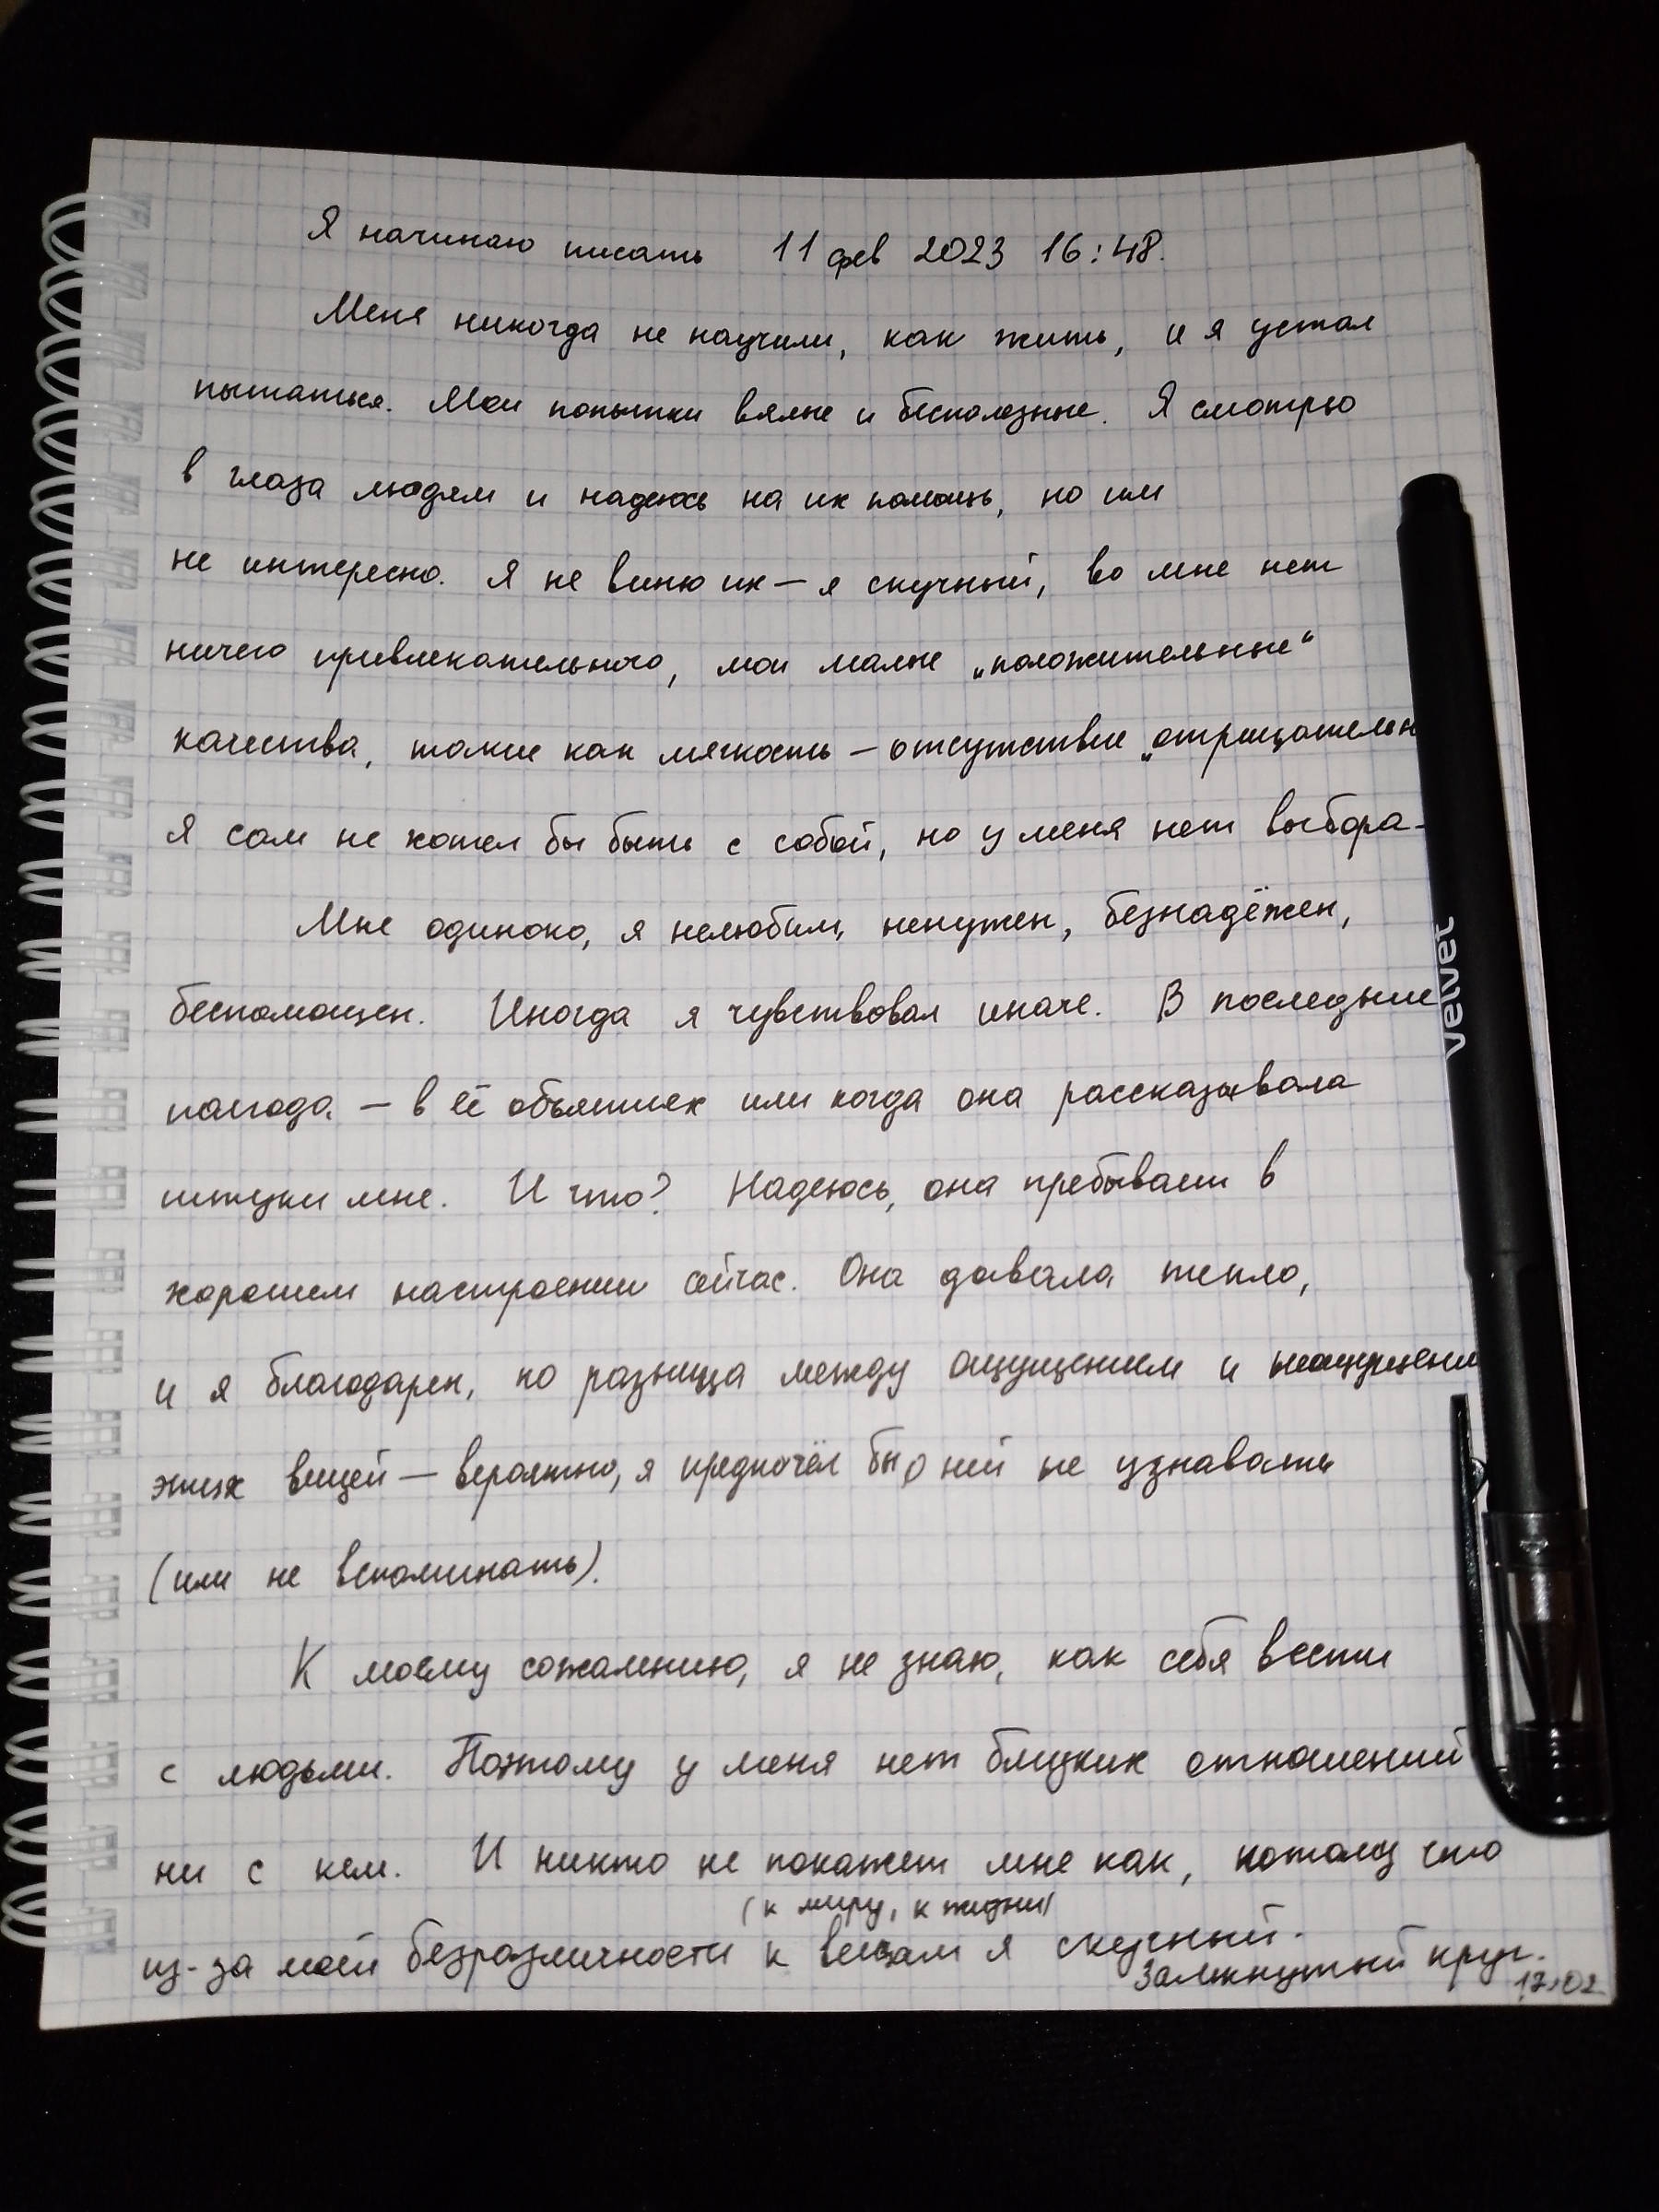 Я начинаю писать 11 фев 2023 16:48.
Меня никогда не научили, как жить, и я устал
пытаться. Мои попытки вялые и бесполезные. Я смотрю
в глаза людям и надеюсь на их помощь, но им
не интересно. Я не виню их — я скучный, во мне нет
ничего привлекательного, мои малые „положительные“
качества, такие как мягкость — отсутствие „отрицательн
Я сам не хотел бы быть с собой, но у меня нет выбора.
Мне одиноко, я нелюбим, ненужен, безнадёжен,
беспомощен. Иногда я чувствовал иначе. В последние
полгода — в её объятиях или когда она рассказывала
штуки мне. И что? Надеюсь, она пребывает в
хорошем настроении сейчас. Она давала тепло,
и я благодарен, но разница между ощущением и неощущени
этих вещей — вероятно, я предпочёл бы о ней не узнавать
(или не вспоминать).
К моему сожалению, я не знаю, как себя вести
с людьми. Поэтому у меня нет близких отношений
ни с кем. И никто не покажет мне как, потому что
(к миру, к жизни)
из-за моей безразличности к вещам я скучный.
Замкнутый круг.
17:02
velvet